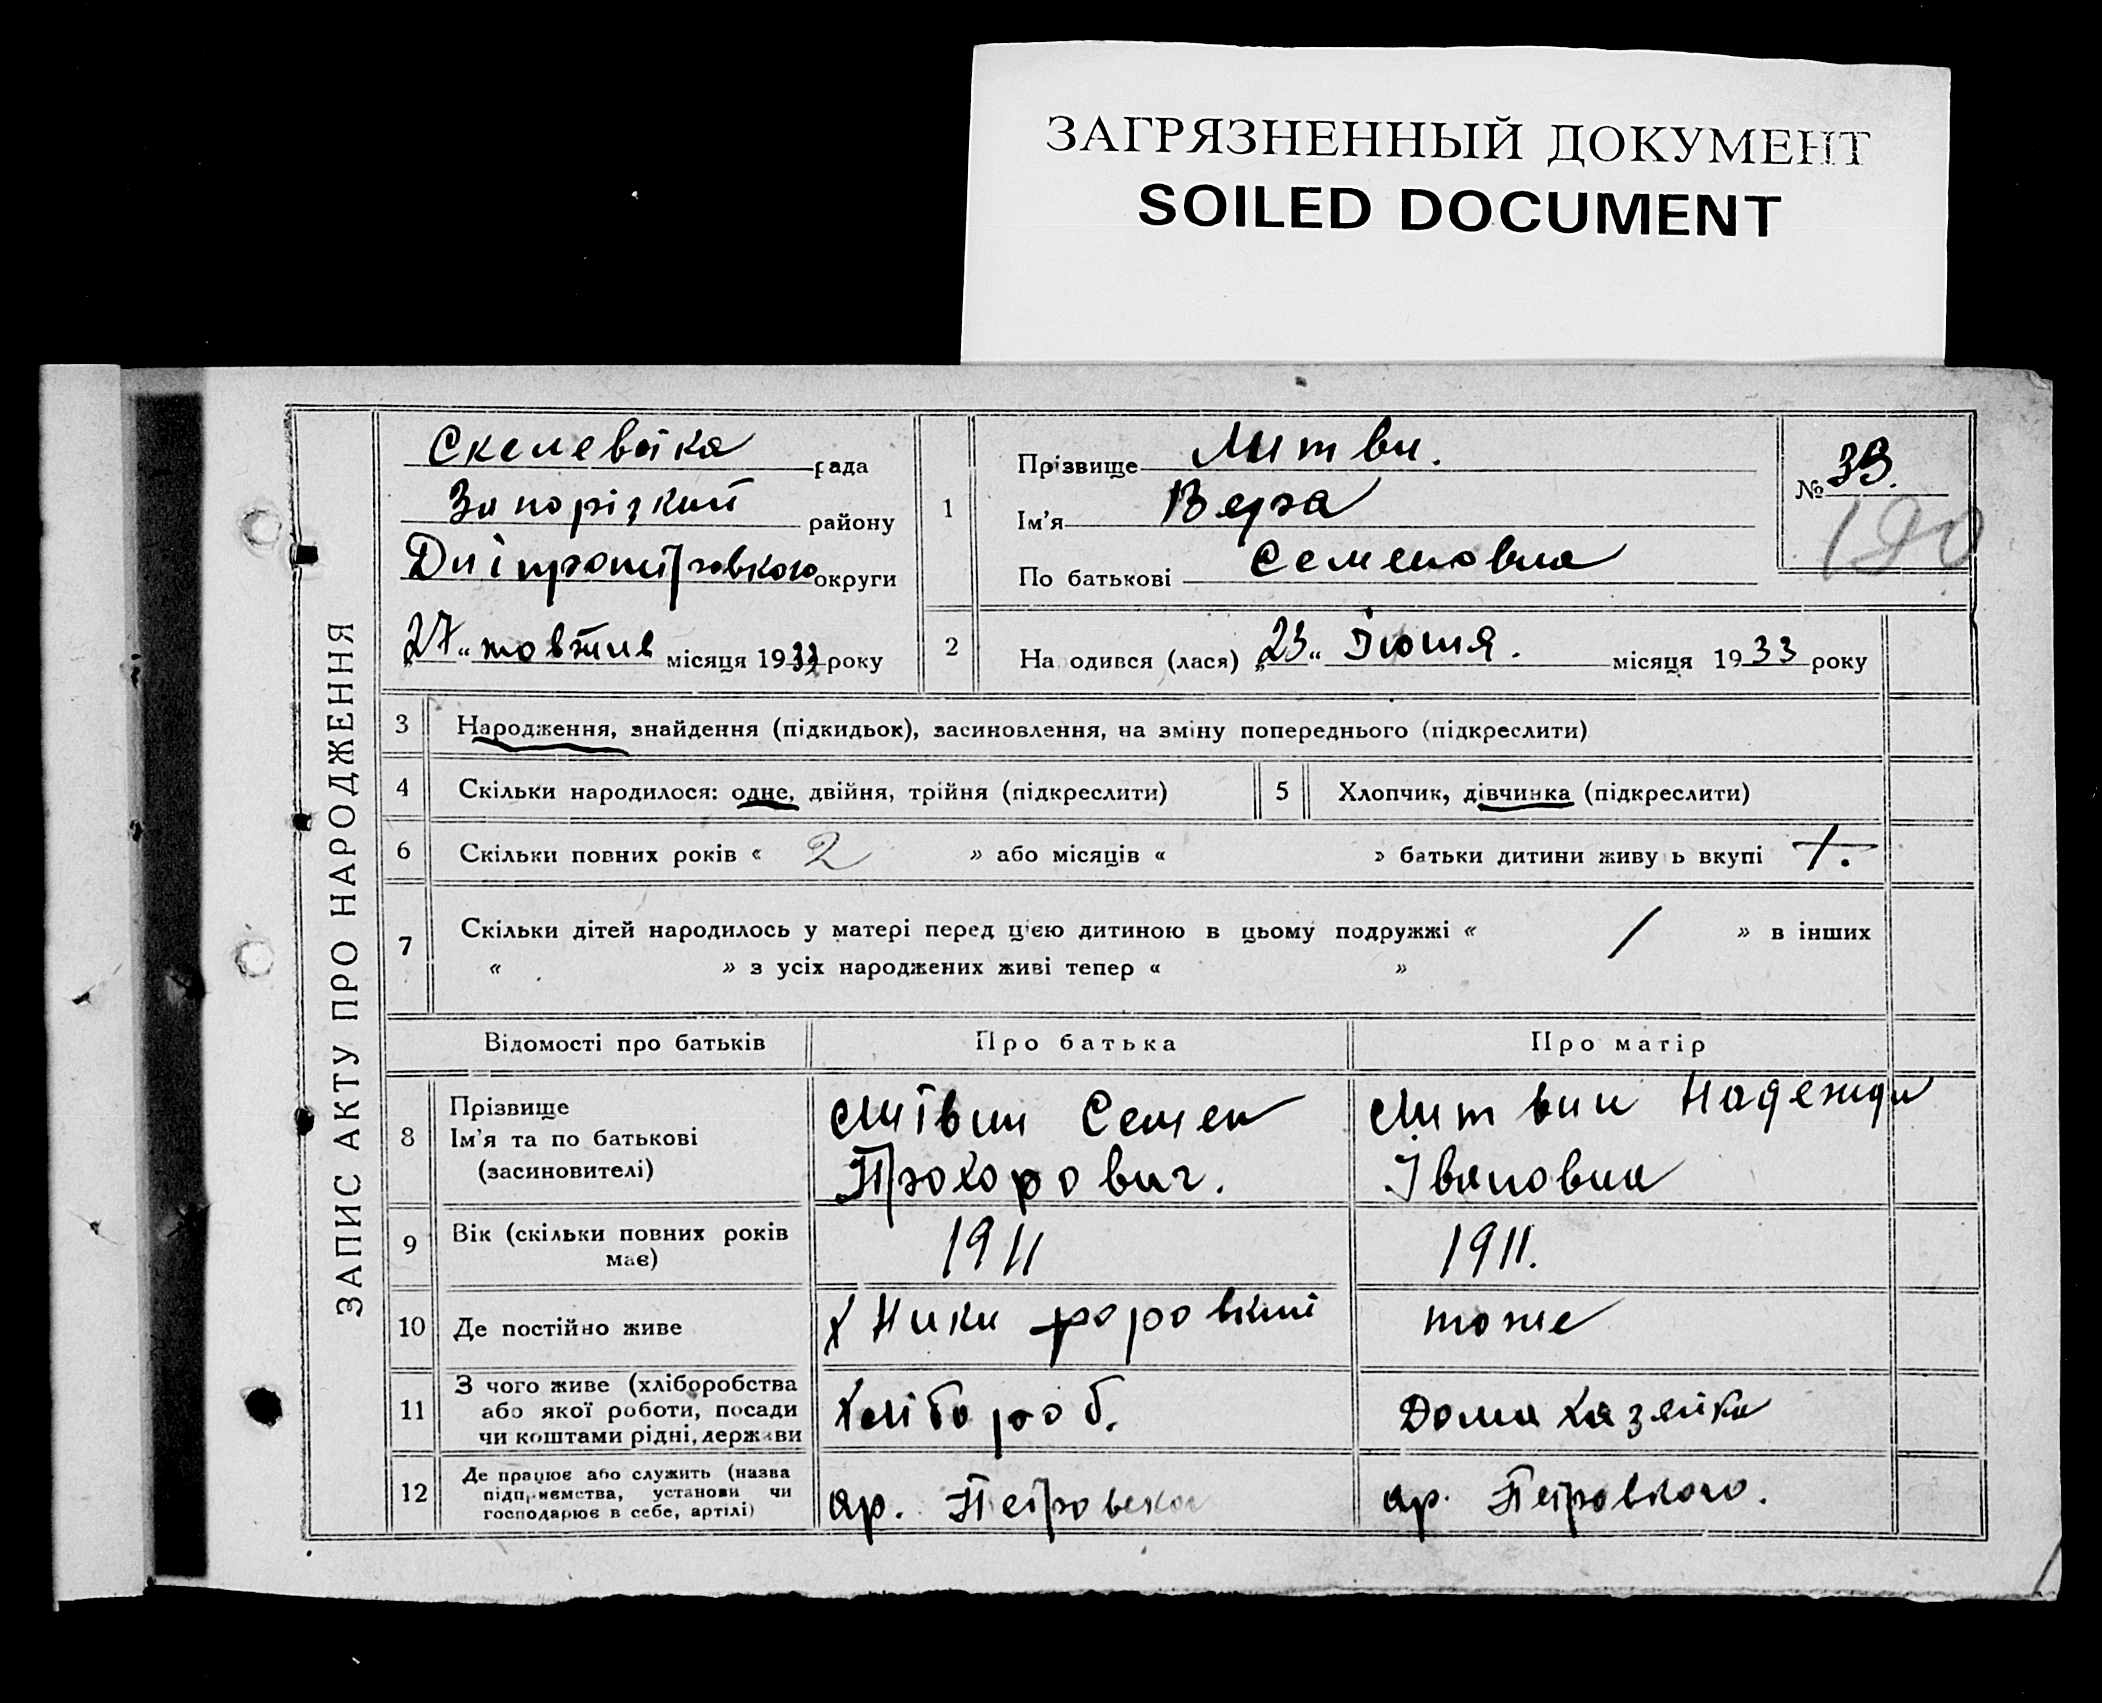 ЗАГРЯЗНЕННЫЙ ДОКУМЕНТ
SOILED DOCUMENT
ЗАПИС АКТУ ПРО НАРОДЖЕННЯ
рада
Запорізкий району
округи
27 " жовтня місяця 1933 року
1
Прізвище Литви.
Ім'я Вера
По батькові Семеновна
№ 39.
190
2
На одився (лася) „ 23 " Июня. місяця 1933 року
3 Народження, знайдення (підкидьок), засиновлення, на зміну попереднього (підкреслити)
4 Скільки народилося: одне, двійня, трійня (підкреслити)
5 Хлопчик, дівчинка (підкреслити)
6 Скільки повних років « 2 » або місяців « » батьки дитини живу ь вкупі
7 Скільки дітей народилось у матері перед ц'єю дитиною в цьому подружжі « / » в інших
« » з усіх народжених живі тепер « »
Відомості про батьків Про батька Про матір
8 Прізвище
Ім'я та по батькові
(засиновителі)
Литвин Семен
Прохорович.
Литвин Надежда
Івановна
9 Вік (скільки повних років
має)
1911
1911.
10 Де постійно живе
Х Никифоровкий
тоже
11 З чого живе (хліборобства
або якої роботи, посади
чи коштами рідні, держави
Хлібороб.
Домахазяйка
12 Де працює або служить (назва
підприємства, установи чи
господарює в себе, артілі)
ар. Петровског
ар. Петровкого.